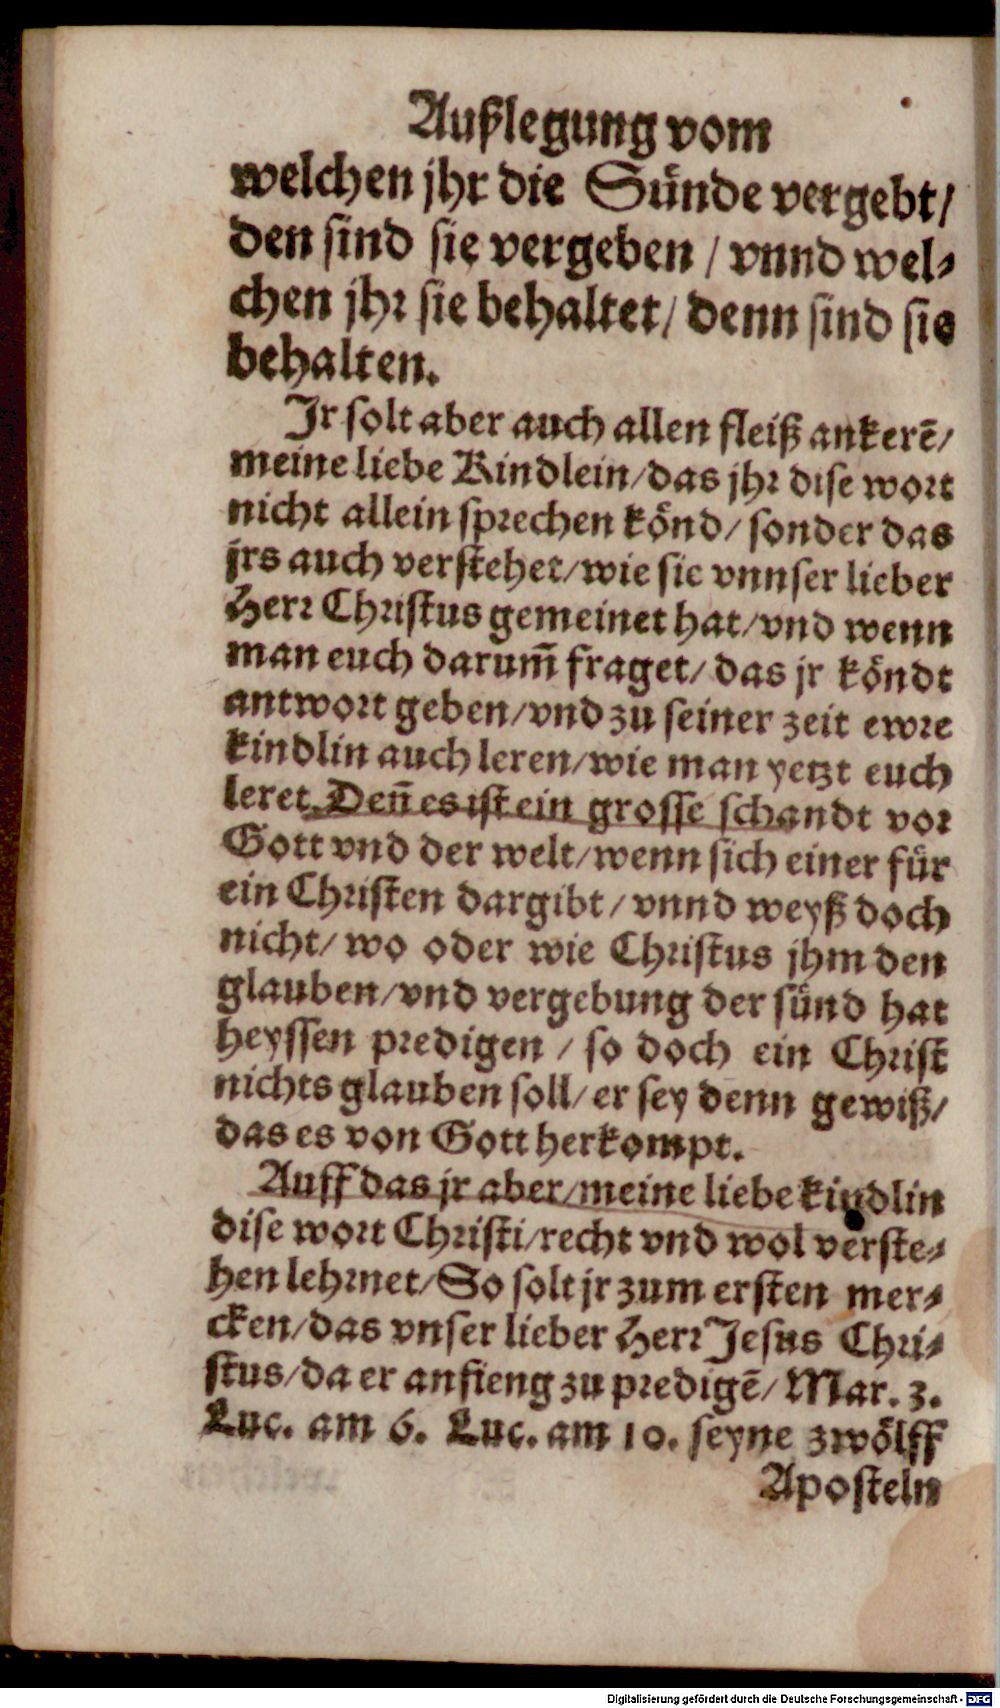 Außlegung vom
welchen jhr die Sünde vergebt/
den sind sie vergeben / vnnd wel⸗
chen jhr sie behaltet/ denn sind sie
behalten.
Jr solt aber auch allen fleiß ankerē/
meine liebe Kindlein/das jhr dise wort
nicht allein sprechen könd/ sonder das
jrs auch verstehet/wie sie vnnser lieber
Herr Christus gemeinet hat/vnd wenn
man euch darum̃ fraget/ das jr köndt
antwort geben/vnd zu seiner zeit ewre
kindlin auch leren/wie man yetzt euch
leret. Den̄ es ist ein grosse schandt vor
Gott vnd der welt/wenn sich einer für
ein Christen dargibt/ vnnd weyß doch
nicht/ wo oder wie Christus jhm den
glauben/vnd vergebung der sünd hat
heyssen predigen / so doch ein Christ
nichts glauben soll/ er sey denn gewiß/
das es von Gott herkompt.
Auff das jr aber/meine liebe kindlin
dise wort Christi/recht vnd wol verste⸗
hen lehrnet/So solt jr zum ersten mer⸗
cken/das vnser lieber Herr Jesus Chri⸗
stus/da er anfieng zu predigē/ Mar. 3.
Luc. am 6. Luc. am 10. seyne zwölff
Aposteln
Digitalisierung gefördert durch die Deutsche Forschungsgemeinschaft - DFG